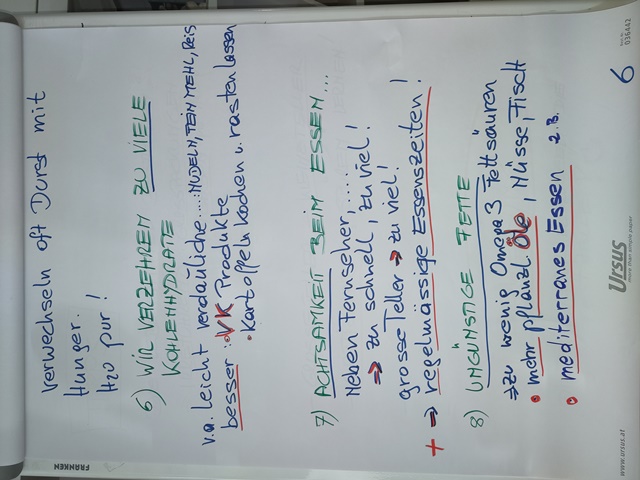 verwechseln oft Durst mit
Hunger.
H2O pur!
6) WIR VERZEHREN ZU VIELE
KOHLENHYDRATE
v.a. leicht verdauliche....NUDELN, FEINMEHL, Reis
besser: • VK Produkte
• Kartoffeln kochen u. rasten lassen
7) ACHTSAMKEIT BEIM ESSEN...
Neben Fernseher,....
⇒ zu schnell, zu viel!
grosse Teller ⇒ zu viel!
+ ⇒ regelmässige Essenszeiten!
8) UNGÜNSTIGE FETTE
⇒ zu wenig Omega 3 Fettsäuren
• mehr pflanzl. Öle, Nüsse, Fisch
• mediterranes Essen z.B.
6
FRANKEN
www.ursus.at
Ursus
036442